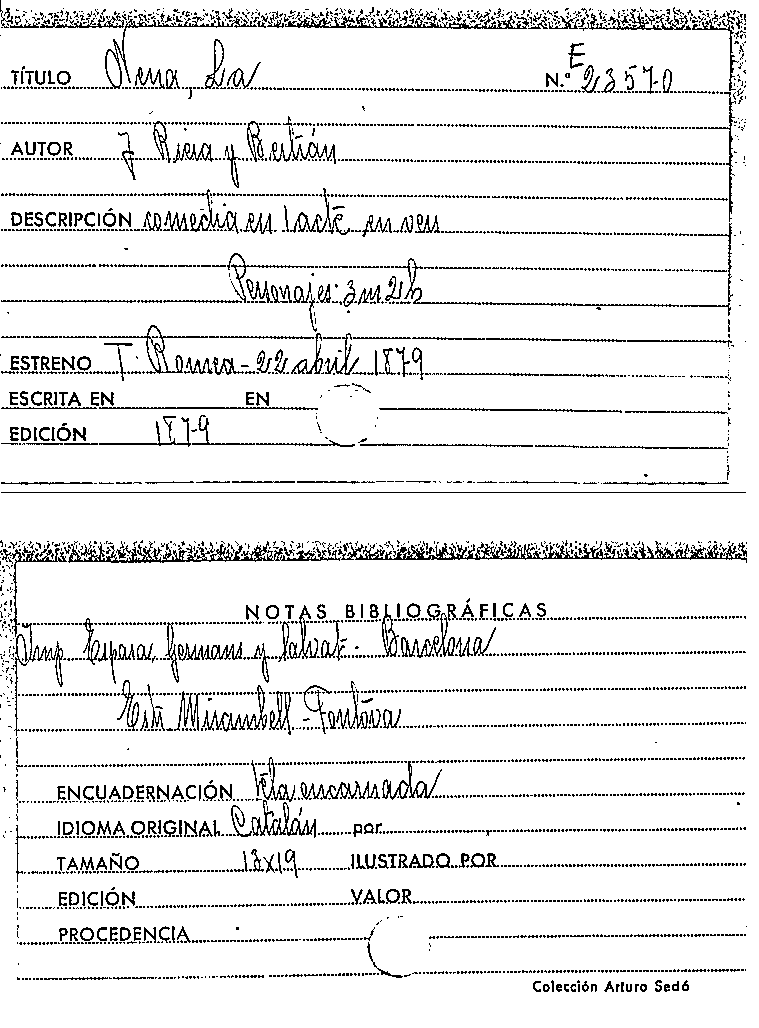 TÍTULO Nena, La N.º E 23570
AUTOR J Riera y Bertrán
DESCRIPCIÓN comedia en 1 acte en vers
Personajes: 3m 2h
ESTRENO T. Romea - 22 abril 1879
ESCRITA EN EN
EDICIÓN 1879
NOTAS BIBLIOGRÁFICAS
Imp. Espasa, germans y Salvat - Barcelona
Mirambell - Fontova
ENCUADERNACIÓN tela encarnada
IDIOMA ORIGINAL Catalán por
TAMAÑO 13x19 ILUSTRADO POR
EDICIÓN VALOR
PROCEDENCIA
Colección Arturo Sedó